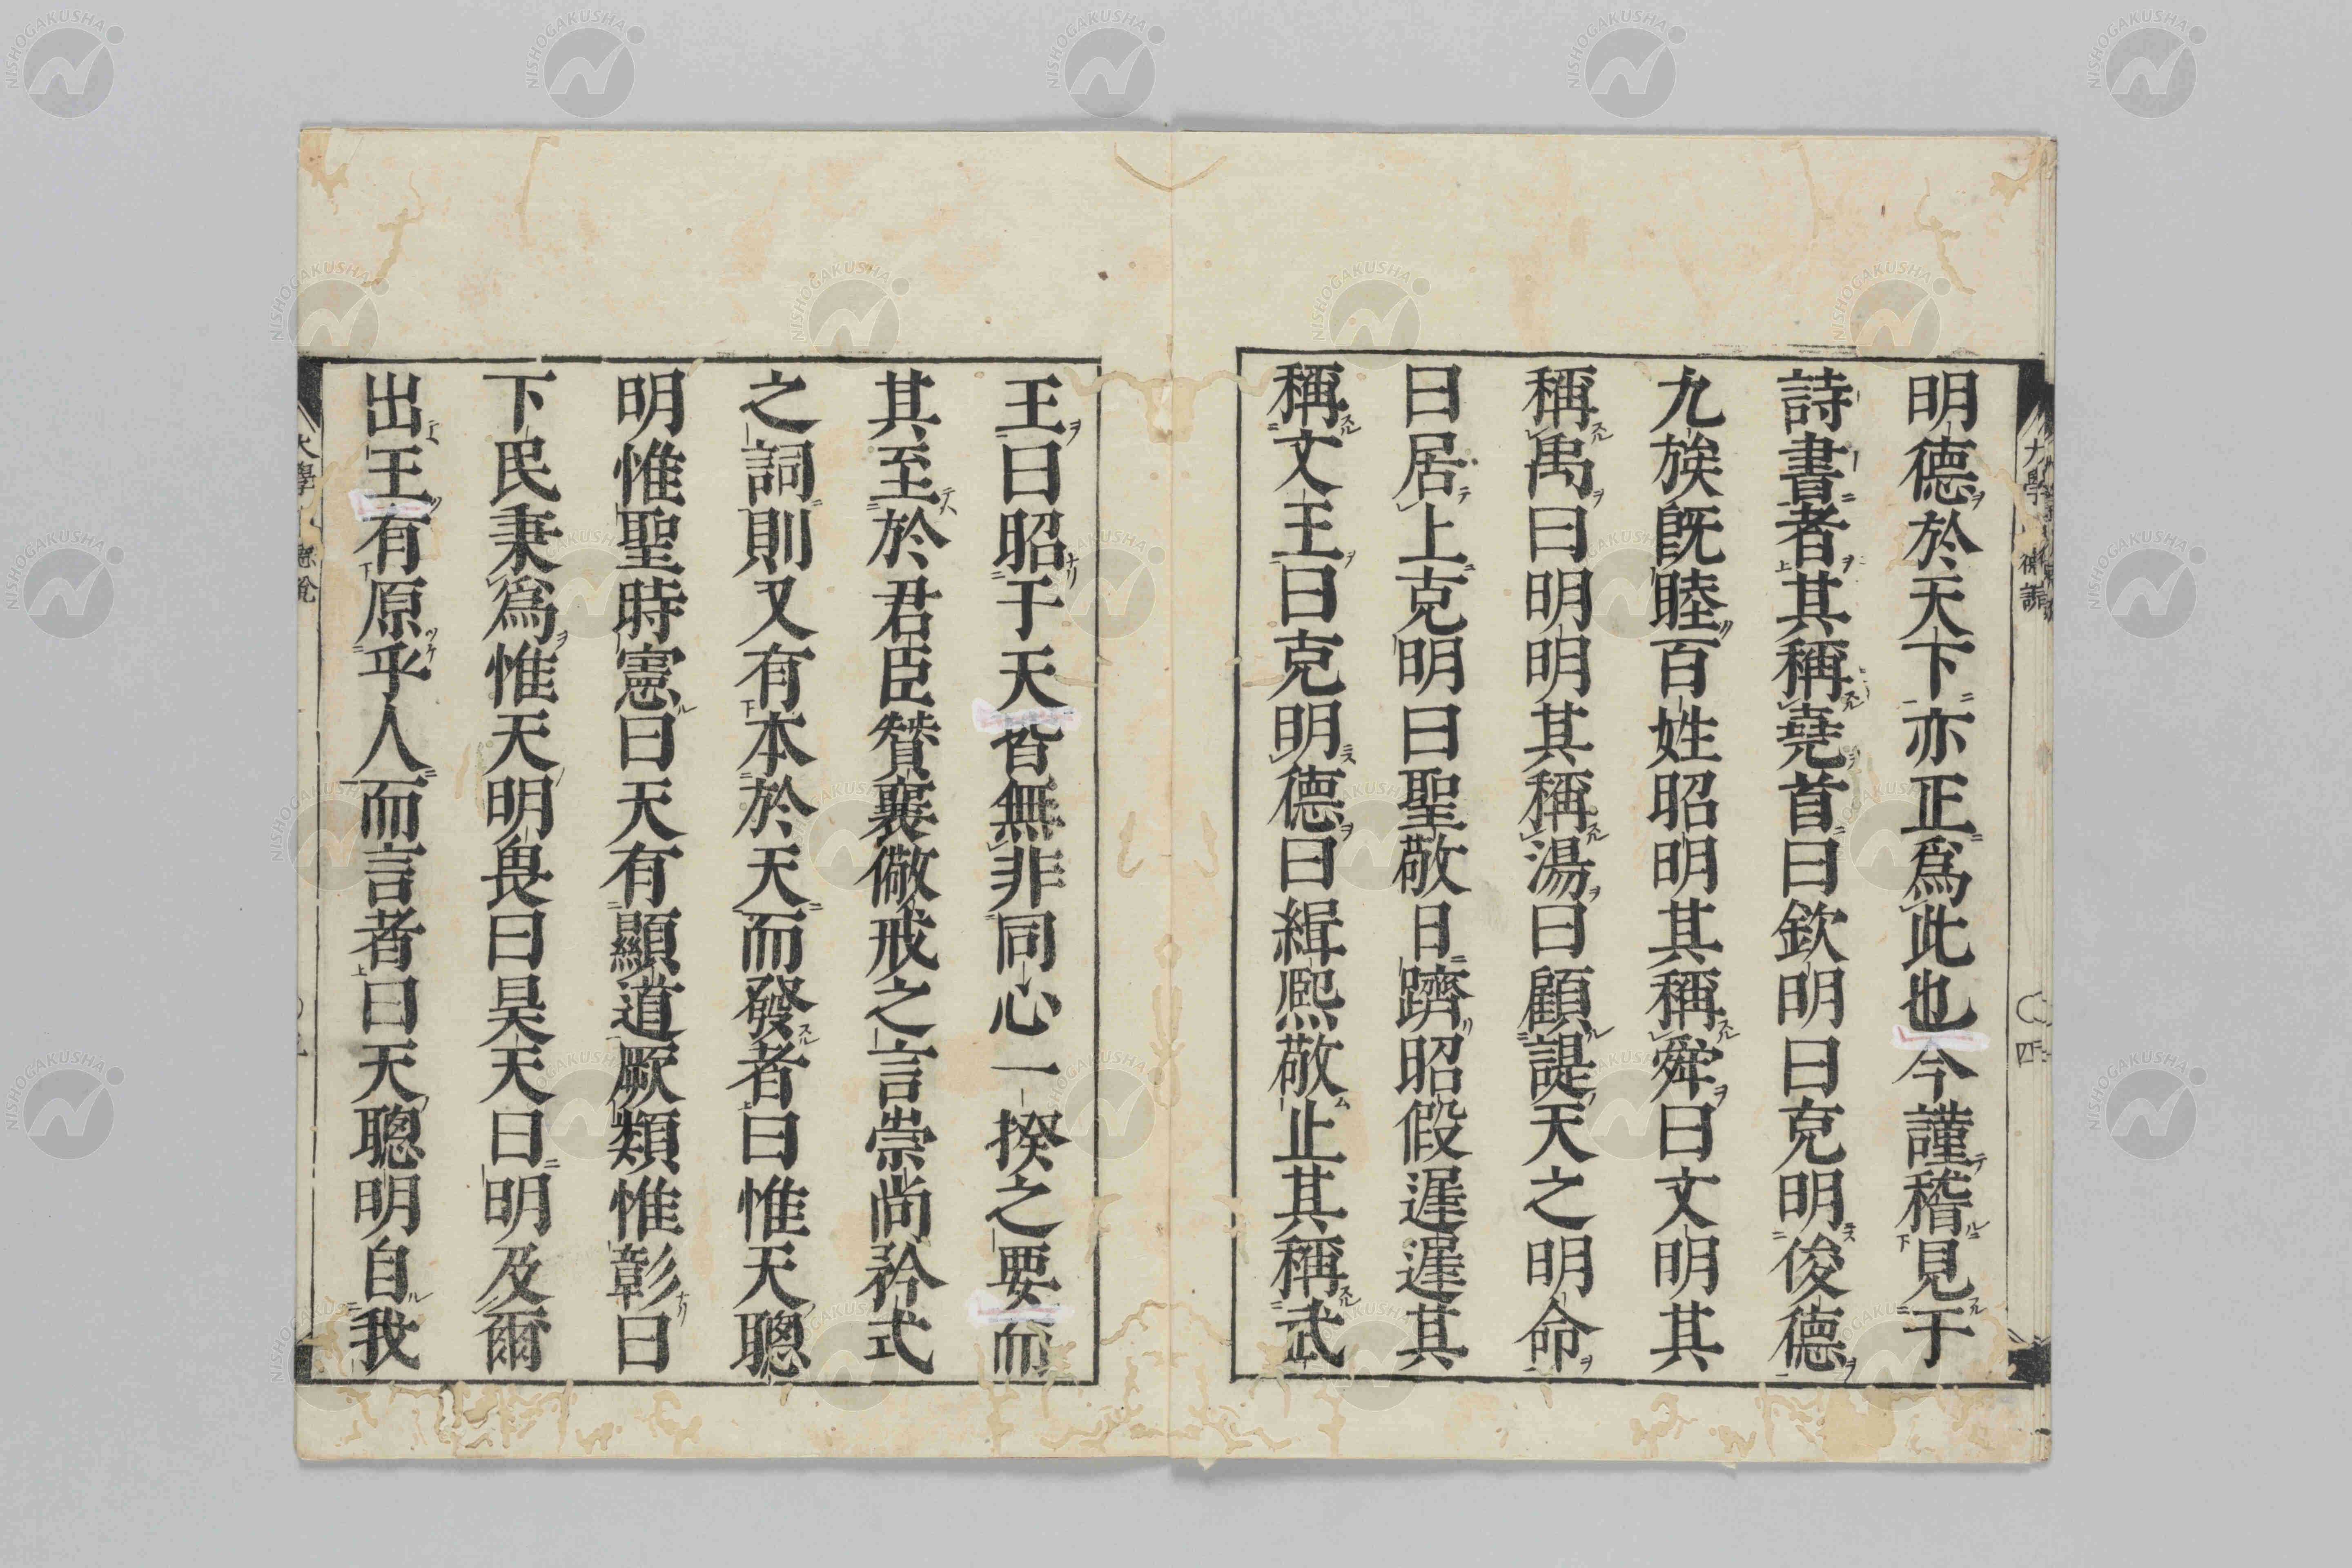 明德於天下亦正爲此也今謹稽見于
詩書者其稱堯首曰欽明曰克明俊德
九族既睦百姓昭明其稱舜曰文明其
稱禹曰明明其稱湯曰顧諟天之明命
曰居上克明曰聖敬日躋昭假遲遲其
稱文王曰克明德曰緝熙敬止其稱武
王曰昭于天皆無非同心一揆之要而
其至於君臣贊襄儆戒之言崇尚矜式
之詞則又有本於天而發者曰惟天聰
明惟聖時憲曰天有顯道厥類惟彰曰
下民秉爲惟天明畏曰昊天曰明及爾
出王有原乎人而言者曰天聰明自我